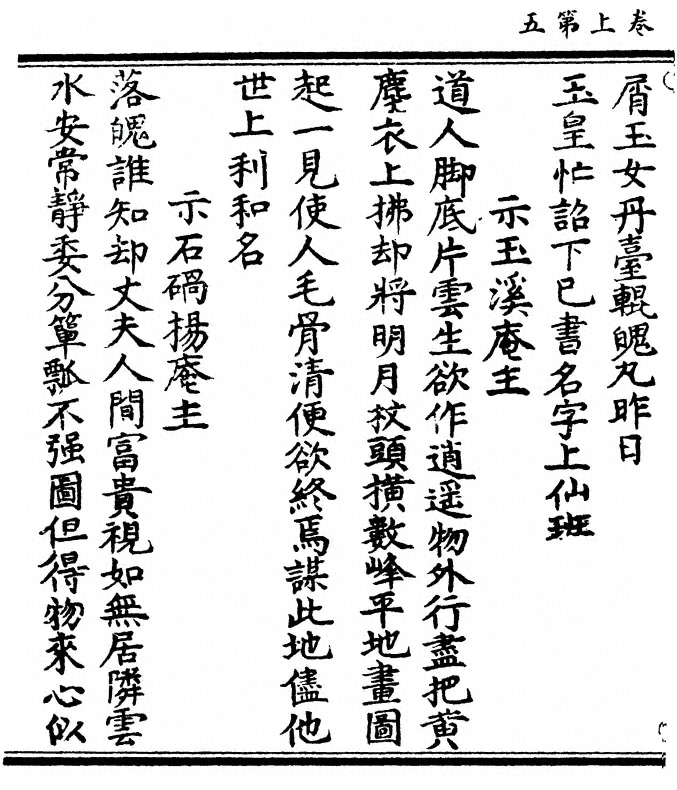 卷上第五
屑玉女丹臺輥魄丸昨日
玉皇忙詔下已書名字上仙班
示玉溪庵主
道人脚底片雲生欲作逍遥物外行盡把黄
塵衣上拂却將明月杖頭横數峰平地畫圖
起一見使人毛骨清便欲終焉謀此地儘他
世上利和名
示石碢揚庵主
落魄誰知却丈夫人間富貴視如無居隣雲
水安常靜委分簞瓢不强圖但得物來心似